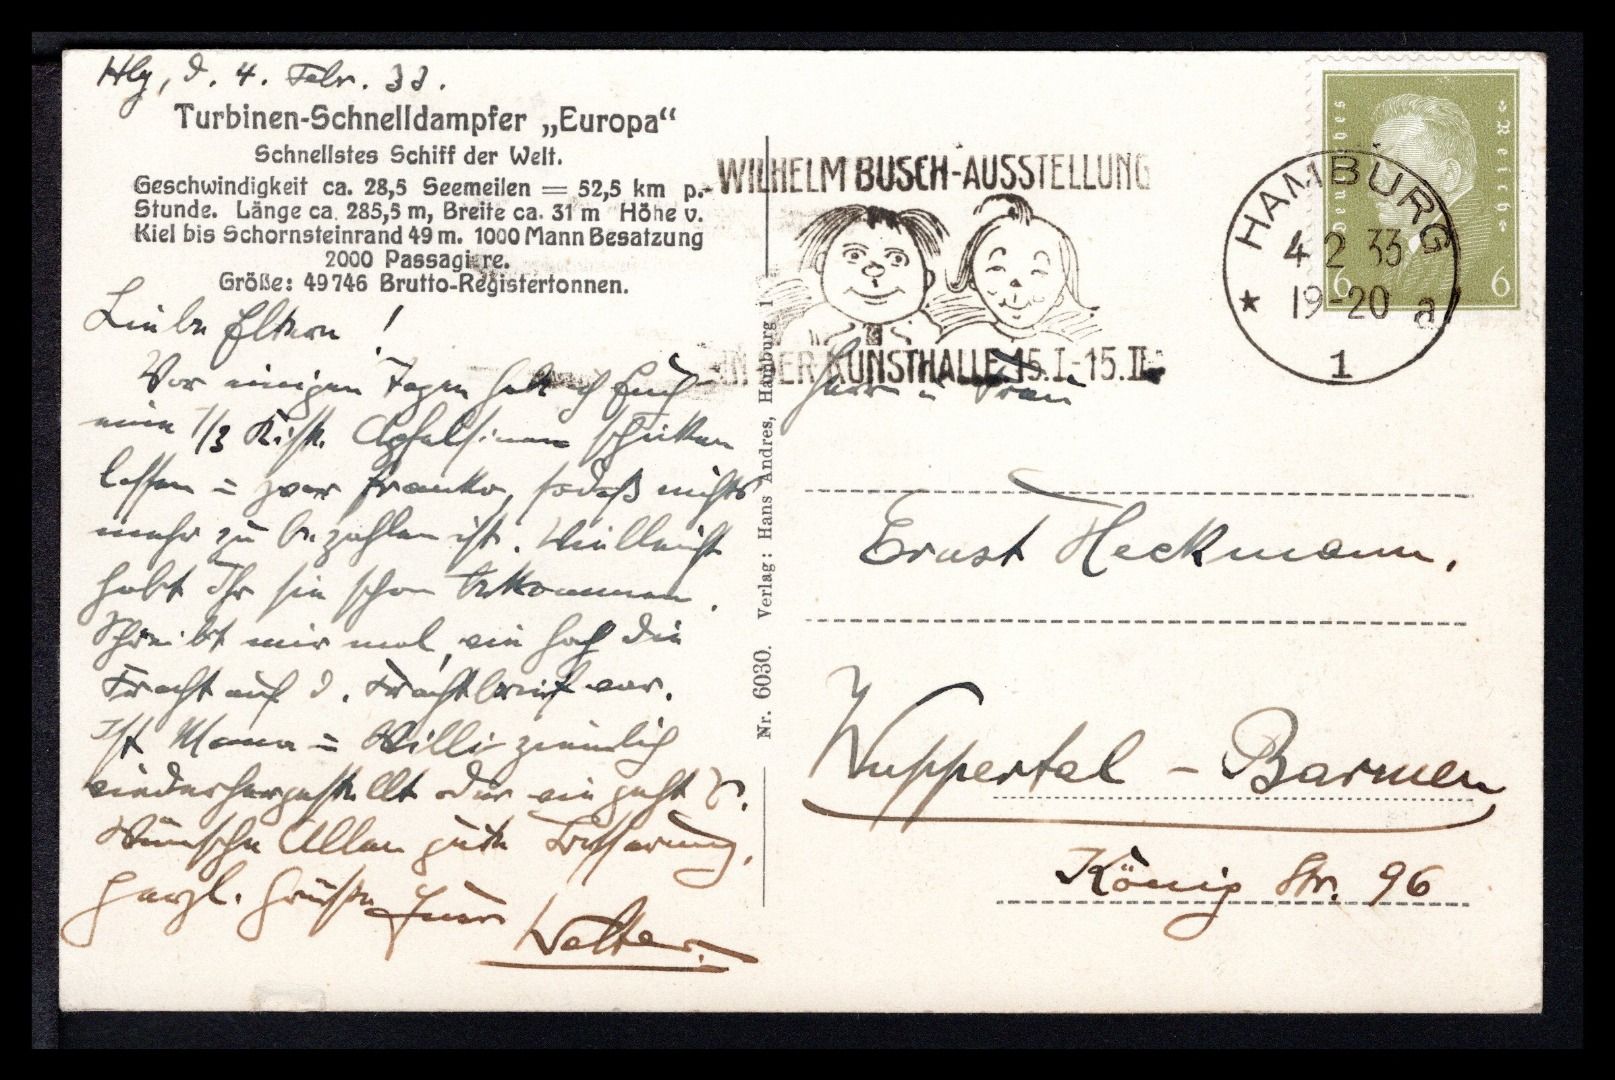 Hbg, d. 4. Febr. 33.
Turbinen-Schnelldampfer „Europa“
Schnellstes Schiff der Welt.
Geschwindigkeit ca. 28,5 Seemeilen = 52,5 km p.
Stunde. Länge ca. 285,5 m, Breite ca. 31 m Höhe v.
Kiel bis Schornsteinrand 49 m. 1000 Mann Besatzung
2000 Passagiere.
Größe: 49746 Brutto-Registertonnen.
Liebe Eltern!
Vor einigen Tagen habe ich Euch
eine 1/3 Kiste Apfelsinen schicken
lassen = zwar franko, sodaß nichts
mehr zu bezahlen ist. Vielleicht
habt Ihr sie schon bekommen.
Schreibt mir mal, wie hoch die
Fracht auf d. Frachtbrief war.
Ist Mama = Willi ziemlich
wiederhergestellt oder wie geht's?
Wünsche Allen gute Besserung.
Herzl. Grüße Euer Walter.
Nr. 6030. Verlag: Hans Andres, Hamburg 1
WILHELM BUSCH-AUSSTELLUNG
IN DER KUNSTHALLE 15.I.-15.II.
Deutsches Reich
6 6
HAMBURG
4 2 33
19-20 a
1
Herrn u Frau
Ernst Heckmann.
Wuppertal - Barmen
König Str. 96